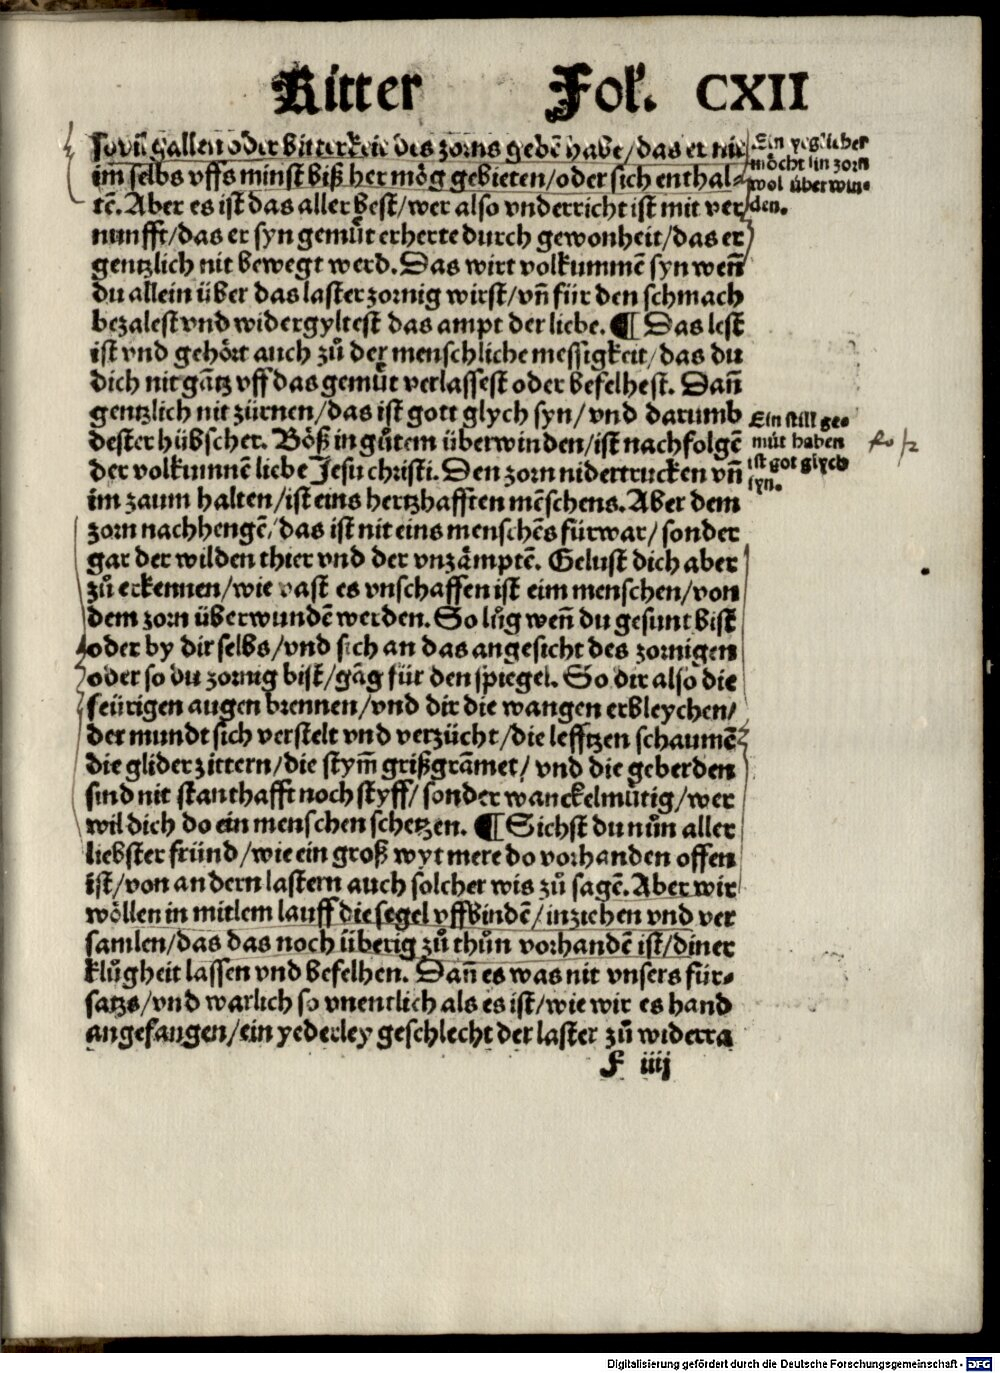 Ritter Fol. CXII
so vil gallen oder bitterkeit des zorns gebē habe/das er nit
im selbs vffs minst biß her mög gebieten/oder sich enthal⸗
tē. Aber es ist das aller best/wer also vnderricht ist mit ver
nunfft/das er syn gemuͤt erherte durch gewonheit/das er
gentzlich nit bewegt werd. Das wirt volkummē syn weñ
du allein über das laster zornig wirst/vñ für den schmach
bezalest vnd widergyltest das ampt der liebe. ¶ Das lest
ist vnd gehört auch zů der menschliche messigkeit/das du
dich nit gātz vff das gemuͤt verlassest oder befelhest. Dañ
gentzlich nit zürnen/das ist gott glych syn/vnd darumb
dester hübscher. Böß in gůtem überwinden/ist nachfolgē
der volkumnē liebe Jesu christi. Den zorn nidertrucken vñ
im zaum halten/ist eins hertzhafften mēschens. Aber dem
zorn nachhengē/das ist nit eins menschēs fürwar/sonder
gar der wilden thier vnd der vnzämptē. Gelust dich aber
zů erkennen/wie vast es vnschaffen ist eim menschen/von
dem zorn überwundē werden. So lůg weñ du gesunt bist
oder by dir selbs/vnd sich an das angesicht des zornigen
oder so du zornig bist/gāg für den spiegel. So dir also die
feürigen augen brennen/vnd dir die wangen erbleychen/
der mundt sich verstelt vnd verzücht/die lefftzen schaumē
die glider zittern/die stym̄ grißgrāmet/vnd die geberden
sind nit stanthafft noch styff/sonder wanckelmuͤtig/wer
wil dich do ein menschen schetzen. ¶ Sichst du nůn aller
liebster fründ/wie ein groß wyt mere do vorhanden offen
ist/von andern lastern auch solcher wis zů sagē. Aber wir
wöllen in mitlem lauff die segel vffbindē/inziehen vnd ver
samlen/das das noch überig zů thůn vorhandē ist/diner
klůgheit lassen vnd befelhen. Dañ es was nit vnsers für⸗
satzs/vnd warlich so vnentlich als es ist/wie wir es hand
angefangen/ein yederley geschlecht der laster zů widerra
f iiij
Ein yeglicher
möcht sin zorn
wol überwin⸗
den.
Ein still ge⸗
müt haben
ist got glych
syn.
Digitalisierung gefördert durch die Deutsche Forschungsgemeinschaft - DFG